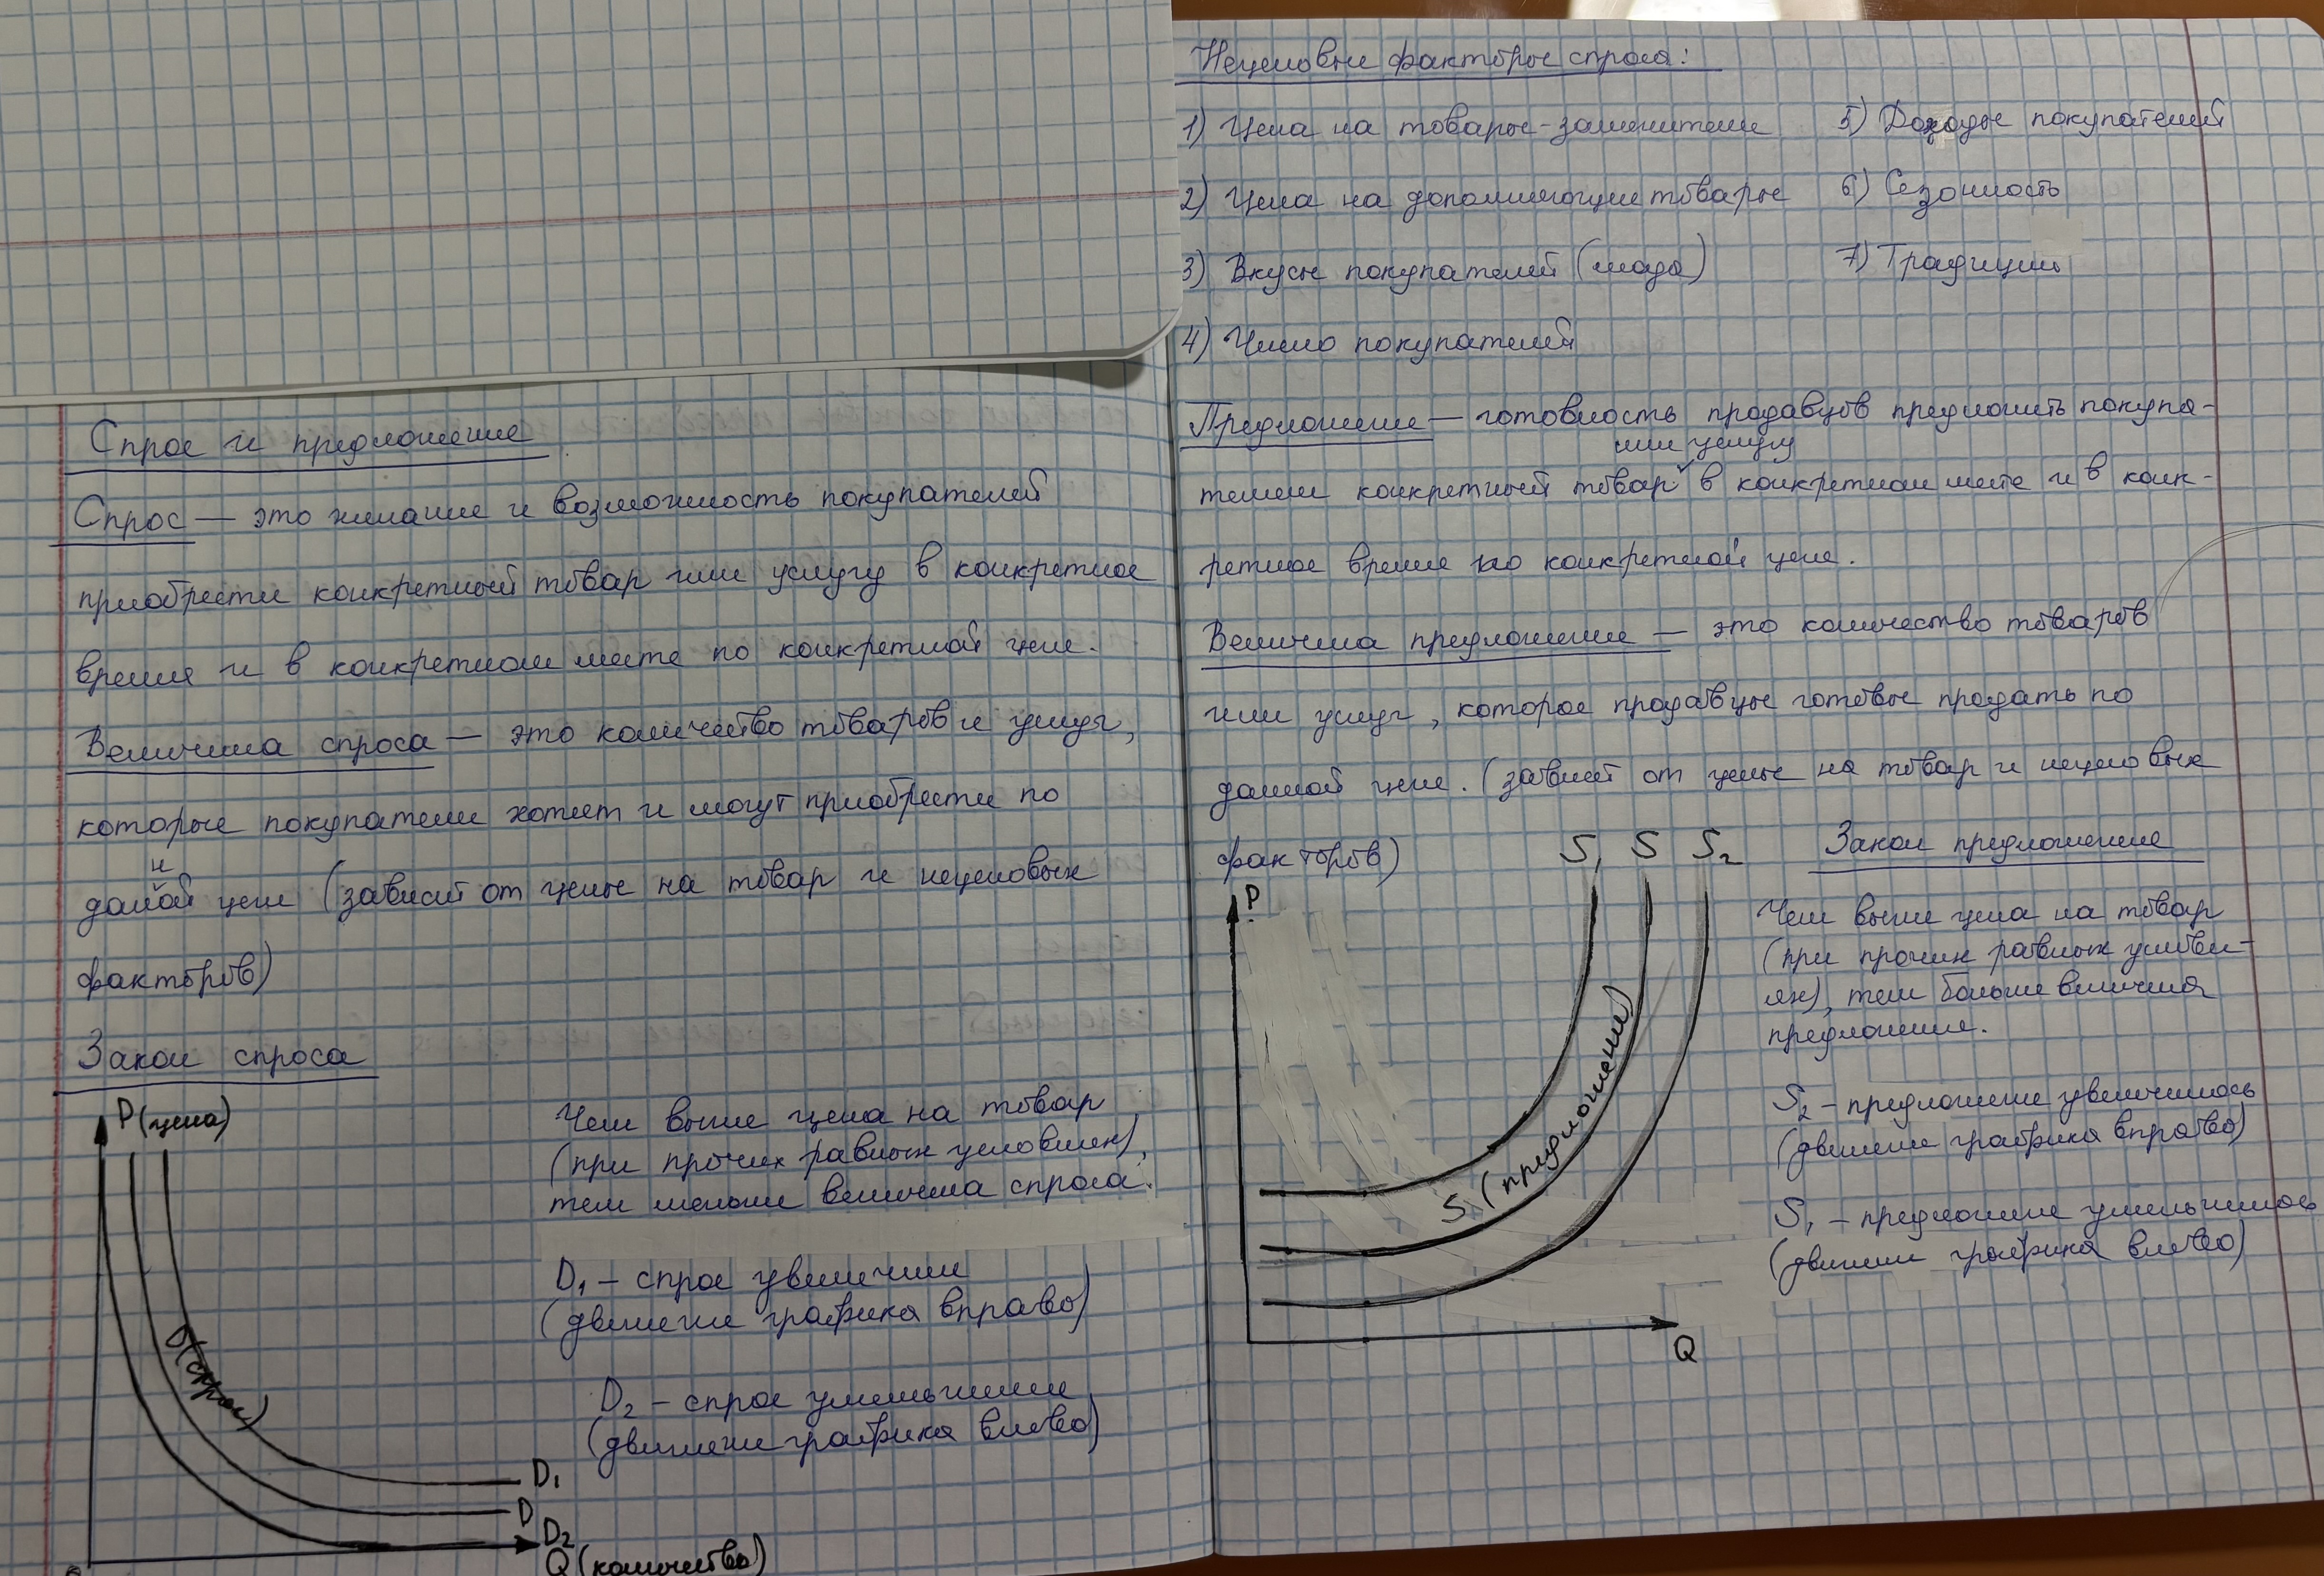 Спрос и предложение
Спрос — это желание и возможность покупателей
приобрести конкретный товар или услугу в конкретное
время и в конкретном месте по конкретной цене.
Величина спроса — это количество товаров и услуг,
которые покупатели хотят и могут приобрести по
н
даной цене (зависит от цены на товар и неценовых
факторов)
Закон спроса
P (цена)
Чем выше цена на товар
(при прочих равных условиях),
тем меньше величина спроса.
D₁ – спрос увеличили
(движение графика вправо)
D₂ – спрос уменьшили
(движение графика влево)
D (спрос)
D₁
D
D₂
Q (количество)
Неценовые факторы спроса:
1) Цена на товары-заменители
2) Цена на дополняющие товары
3) Вкусы покупателей (мода)
4) Число покупателей
5) Доходы покупателей
6) Сезонность
7) Традиции
Предложение — готовность продавцов предложить покупа-
или услугу
телям конкретный товар в конкретном месте и в конк-
ретное время по конкретной цене.
Величина предложения — это количество товаров
или услуг, которое продавцы готовы продать по
данной цене. (зависит от цены на товар и неценовых
факторов)
S₁ S S₂
P
S (предложение)
Q
Закон предложения
Чем выше цена на товар
(при прочих равных услови-
ях), тем больше величина
предложения.
S₂ – предложение увеличилось
(движение графика вправо)
S₁ – предложение уменьшилось
(движение графика влево)